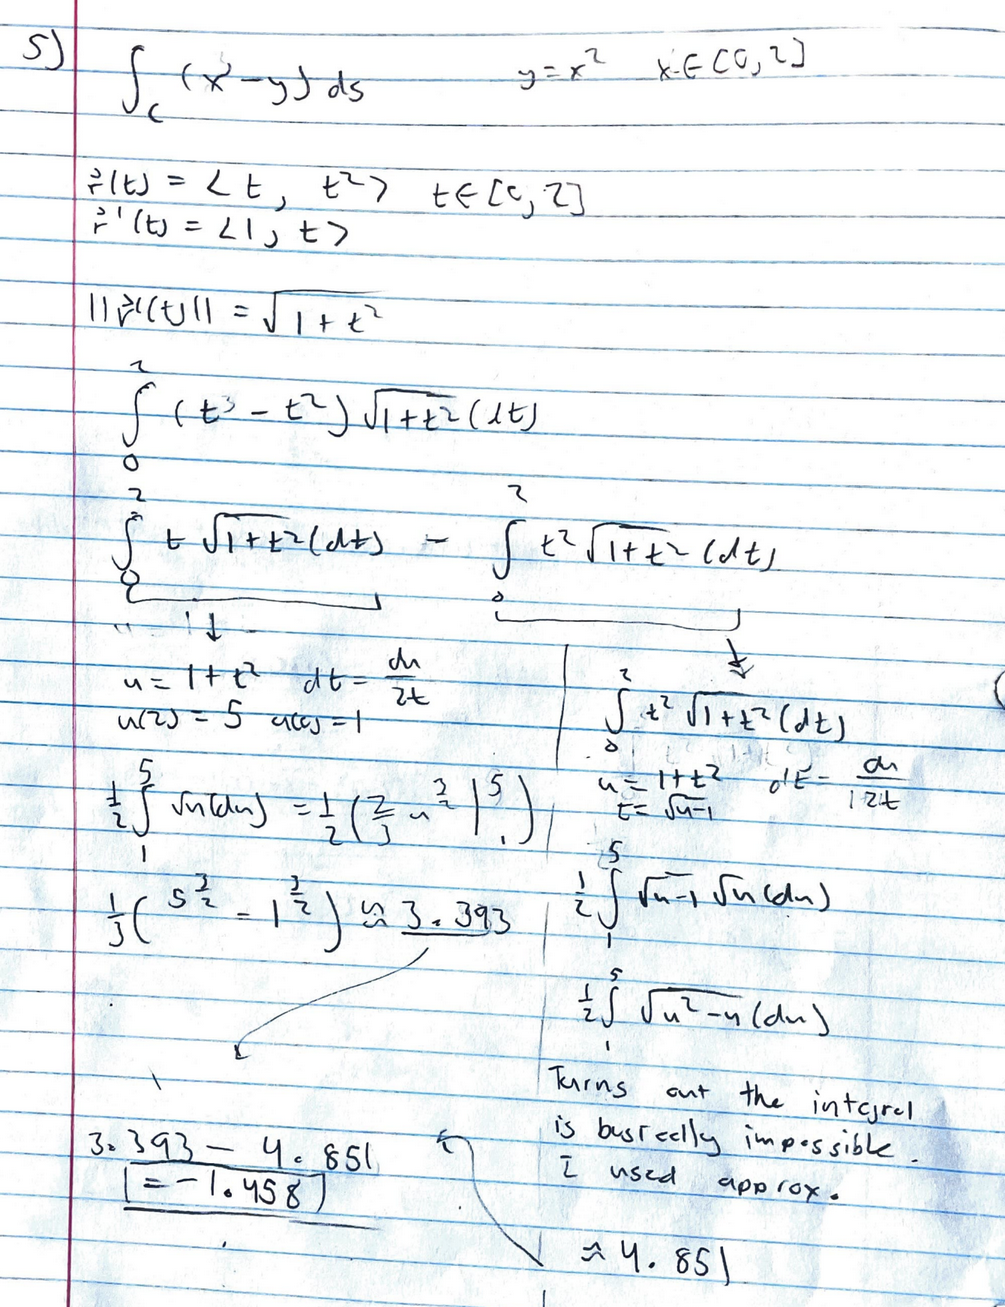 5) ∫_C (x³ - y) ds y = x² x ∈ [0, 2]
r⃗(t) = <t, t²> t ∈ [0, 2]
r⃗'(t) = <1, t>
||r⃗'(t)|| = √(1 + t²)
∫₀² (t³ - t²) √(1 + t²) (dt)
∫₀² t √(1 + t²) (dt) - ∫₀² t² √(1 + t²) (dt)
u = 1 + t² dt = du/2t
u(2) = 5 u(0) = 1
½ ∫₁⁵ √u (du) = ½ (⅔ u^(3/2) |₁⁵)
⅓ (5^(3/2) - 1^(3/2)) ≈ 3.393
∫₀² t² √(1 + t²) (dt)
u = 1 + t² dt = du/2t
t = √(u-1)
½ ∫₁⁵ √(u-1) √u (du)
½ ∫₁⁵ √(u² - u) (du)
Turns out the integral
is basically impossible.
I used approx.
≈ 4.851
3.393 - 4.851
= -1.458